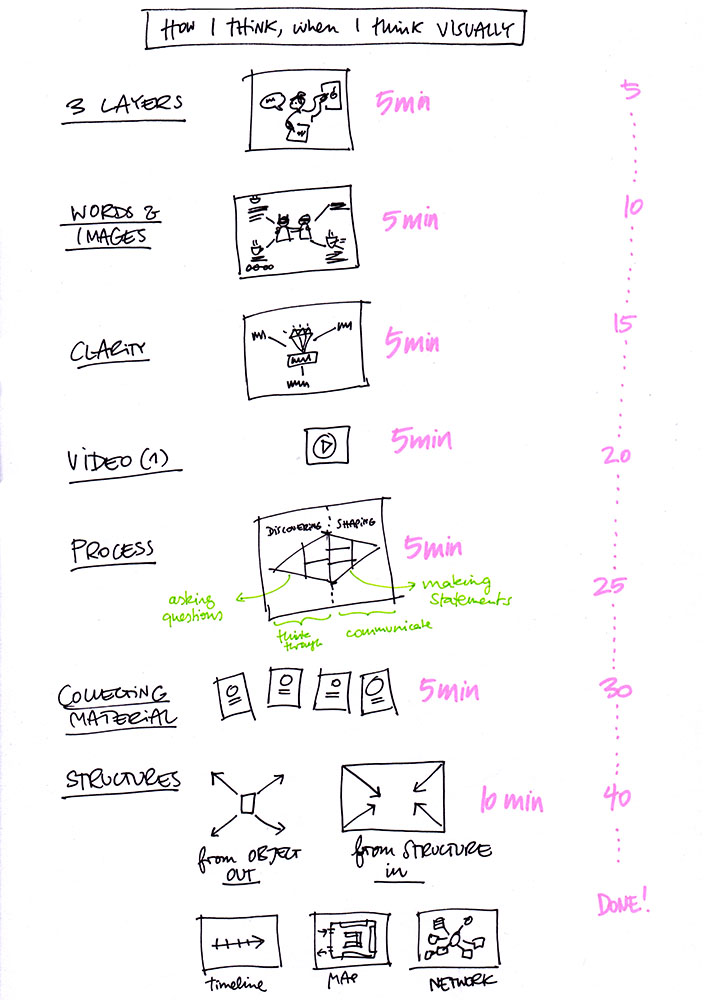 HOW I THINK, when I think VISUALLY
3 LAYERS
5min
5
WORDS &
IMAGES
5min
10
CLARITY
5min
15
VIDEO (1)
5min
20
PROCESS
DISCOVERING
SHAPING
5min
asking
questions
making
statements
25
think
through
communicate
COLLECTING
MATERIAL
5min
30
STRUCTURES
10 min
40
from OBJECT
OUT
from STRUCTURE
in
DONE!
timeline
MAP
NETWORK